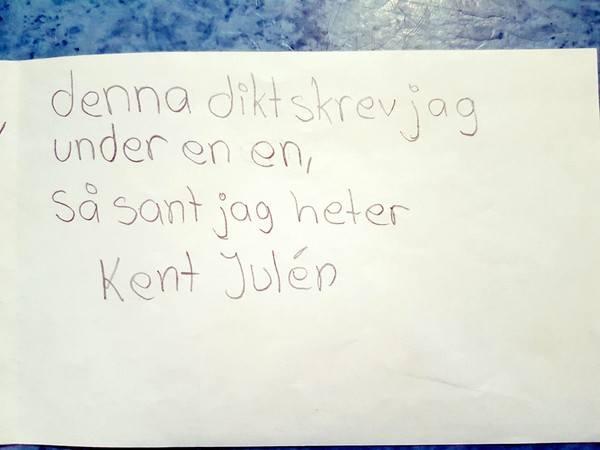 denna dikt skrev jag
under en en,
så sant jag heter
Kent Julén